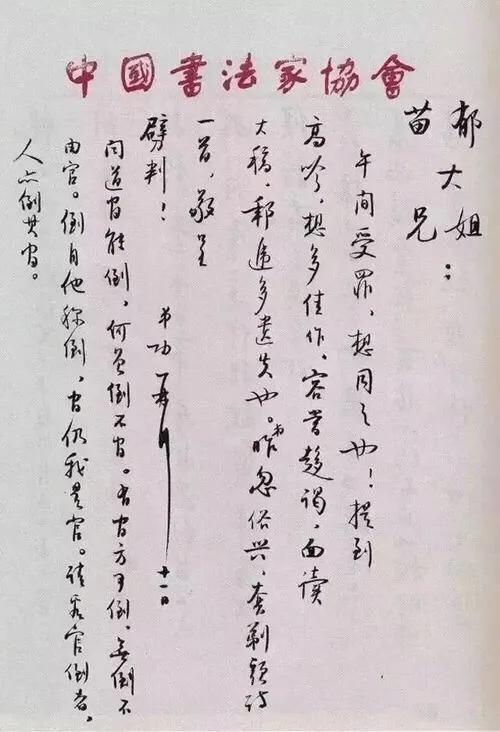 中國書法家協會
郁大姐：
苗兄
午间受罪，想同之也！提到
高吟，想多佳作，容当趋谒，面读
大稿，邮递多遗失也。弟昨忽俗兴，套剃头诗
一首，敬呈
劈判！
弟功 十一日
闻道官能倒，何曾倒不官。有官方可倒，无倒不
由官。倒自他称倒，官仍我是官。请看官倒者，
人亦倒其官。